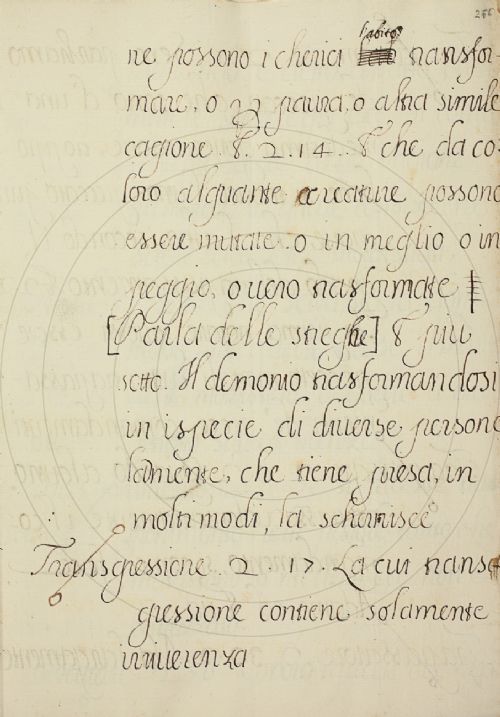 266
habito
ne possono i cherici trasfor-
mare, o per paura, o altra simile
cagione. &. 2. 14. & che da co-
loro alquante creature possono
essere mutate o in meglio o in
peggio, o uero trasformate
[Parla delle streghe] & piu
sotto. Il demonio trasformandosi
in ispecie di diuerse persone
la mente, che tiene presa, in
molti modi, la schernisce
Transgressione. 2. 17. La cui transg
gressione contiene solamente
inriuerenza